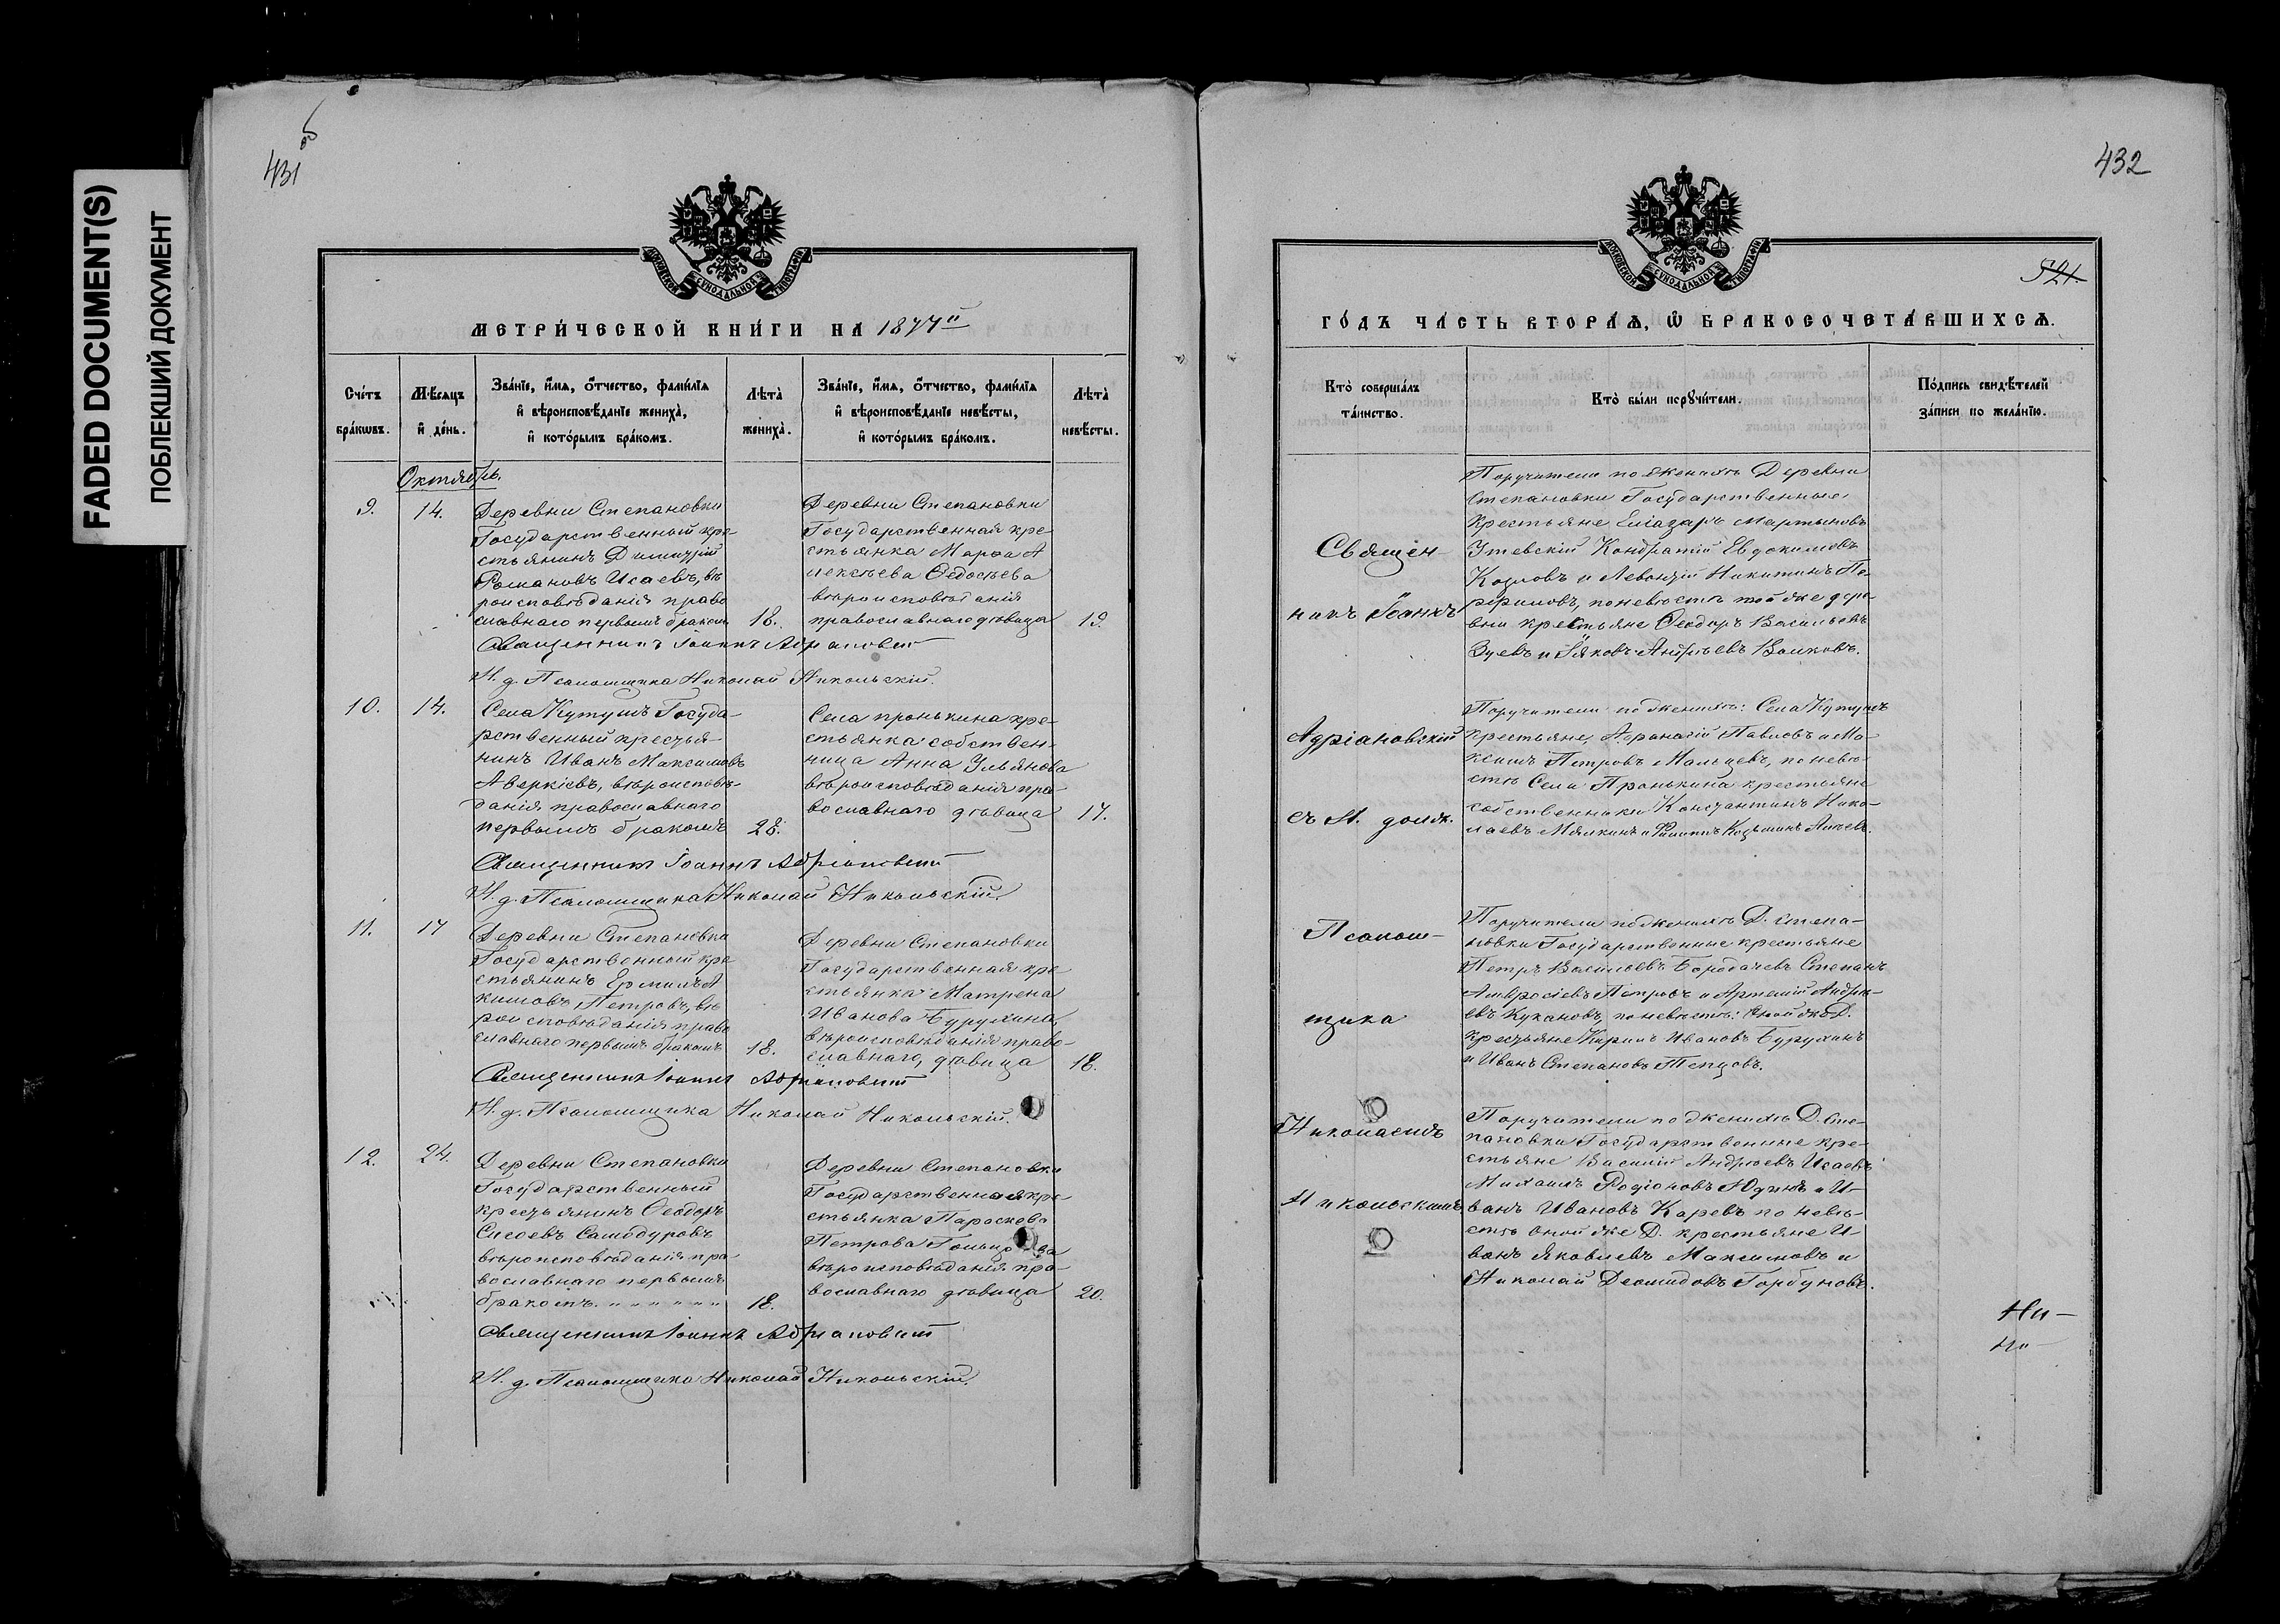 FADED DOCUMENT(S)
ПОБЛЕКШИЙ ДОКУМЕНТ
431 об
МОСКОВСКОЙ СУНОДАЛЬНОЙ ТИПОГРАФІИ
МЕТРИ́ЧЕСКОЙ КНИ́ГИ НА 1877й
Сче́тъ бра́кѡвъ.
Мѣ́сѧцъ и҆ де́нь.
Зва́нїе, и҆́мѧ, ѻ҆́тчество, фами́лїѧ
и҆ вѣроисповѣ́данїе жениха̀,
и҆ кото́рымъ бра́комъ.
Лѣ́та̀ жениха̀.
Зва́нїе, и҆́мѧ, ѻ҆́тчество, фами́лїѧ
и҆ вѣроисповѣ́данїе невѣ́сты,
и҆ кото́рымъ бра́комъ.
Лѣ́та̀ невѣ́сты.
Октябрь.
9. 14.
Деревни Степановки
Государственный кре-
стьянинъ Димитрій
Романовъ Исаевъ, вѣ
роисповѣданія право
славнаго первымъ бракомъ 18.
Деревни Степановки
Государственная кре
стьянка Марфа А
лексѣева Ѳедосѣева
вѣроисповѣданія
православнаго дѣвица 19.
Священникъ Іоаннъ Адріановскій
И. д. Псаломщика Николай Никольскій.
10. 14.
Села Кутушъ Госуда-
рственный крестья-
нинъ Иванъ Максимовъ
Аверкіевъ, вѣроисповѣ-
данія православнаго
первымъ бракомъ 28.
Села Пронькина кре-
стьянка собствен-
ница Анна Ульянова
вѣроисповѣданія пра-
вославнаго дѣвица 17.
Священникъ Іоаннъ Адріановскій
И. д. Псаломщика Николай Никольскій.
11. 17
Деревни Степановки
Государственный кре
стьянинъ Ермилъ А
кимовъ Петровъ, вѣ
роисповѣданія право
славнаго первымъ бракомъ 18.
Деревни Степановки
Государственная кре-
стьянка Матрена
Иванова Бурухина,
вѣроисповѣданія право-
славнаго, дѣвица 18.
Священникъ Іоаннъ Адріановскій
И. д. Псаломщика Николай Никольскій.
12. 24.
Деревни Степановки
Государственный
крестьянинъ Ѳеодоръ
Сысоевъ Самодуровъ
вѣроисповѣданія пра-
вославнаго первымъ
бракомъ. 18.
Деревни Степановки
Государственная кре-
стьянка Параскева
Петрова
вѣроисповѣданія пра-
вославнаго дѣвица 20.
Священникъ Іоаннъ Адріановскій
И. д. Псаломщика Николай Никольскій.
432
МОСКОВСКОЙ СУНОДАЛЬНОЙ ТИПОГРАФІИ
521.
ГО́ДЪ ЧА́СТЬ ВТОРА́Ѧ, Ѡ҆ БРАКОСОЧЕТА́ВШИХСѦ.
Кто̀ соверша́лъ та́инство.
Кто̀ бы́ли порꙋчи́тели.
По́дпись свидѣ́телей за́писи по жела́нїю.
Священ-
никъ Іоаннъ
Адріановскій
съ И. должн.
Псалом-
щика
Николаемъ
Никольскимъ
Поручители по женихѣ Деревни
Степановки Государственные
Крестьяне Еліазаръ Мартыновъ
Утевскій Кондратій Евдокимовъ
Козловъ и Леонтій Никитинъ Пе-
рфиловъ, по невѣстѣ той же дере
вни крестьяне Ѳеодоръ Васильевъ
Зуевъ и Іаковъ Андреевъ Волковъ.
Поручители по женихѣ: Села Кутушъ
крестьяне, Аѳанасій Павловъ и Ма-
ксимъ Петровъ Мальцевъ, по невѣ-
стѣ Села Пронькина крестьяне
собственники Константинъ Нико-
лаевъ Мялкинъ и Филиппъ Козьминъ
Поручители по женихѣ Д. Степа-
новки Государственные крестьяне
Петръ Васильевъ Бородачевъ Степанъ
Амвросіевъ Петровъ и Артемій Андре-
евъ Кукановъ, по невѣстѣ: оной же Д.
крестьяне Кирилъ Ивановъ Бурухинъ
и Иванъ Степановъ Тепцовъ.
Поручители по женихѣ Д. Сте-
пановки Государственные кре-
стьяне Василій Андреевъ Исаевъ
Михаилъ Родіоновъ Юдинъ и И-
ванъ Ивановъ Каревъ по невѣ-
стѣ оной же Д. крестьяне И-
ванъ Яковлевъ Максимовъ и
Николай Деомидовъ Горбуновъ.
Ни-
ко-